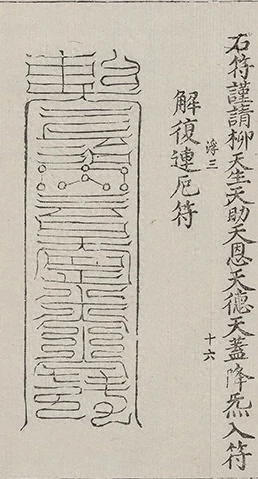 石符謹請柳天生天助天恩天德天蓋降炁入符
浮三
十六
解復連厄符